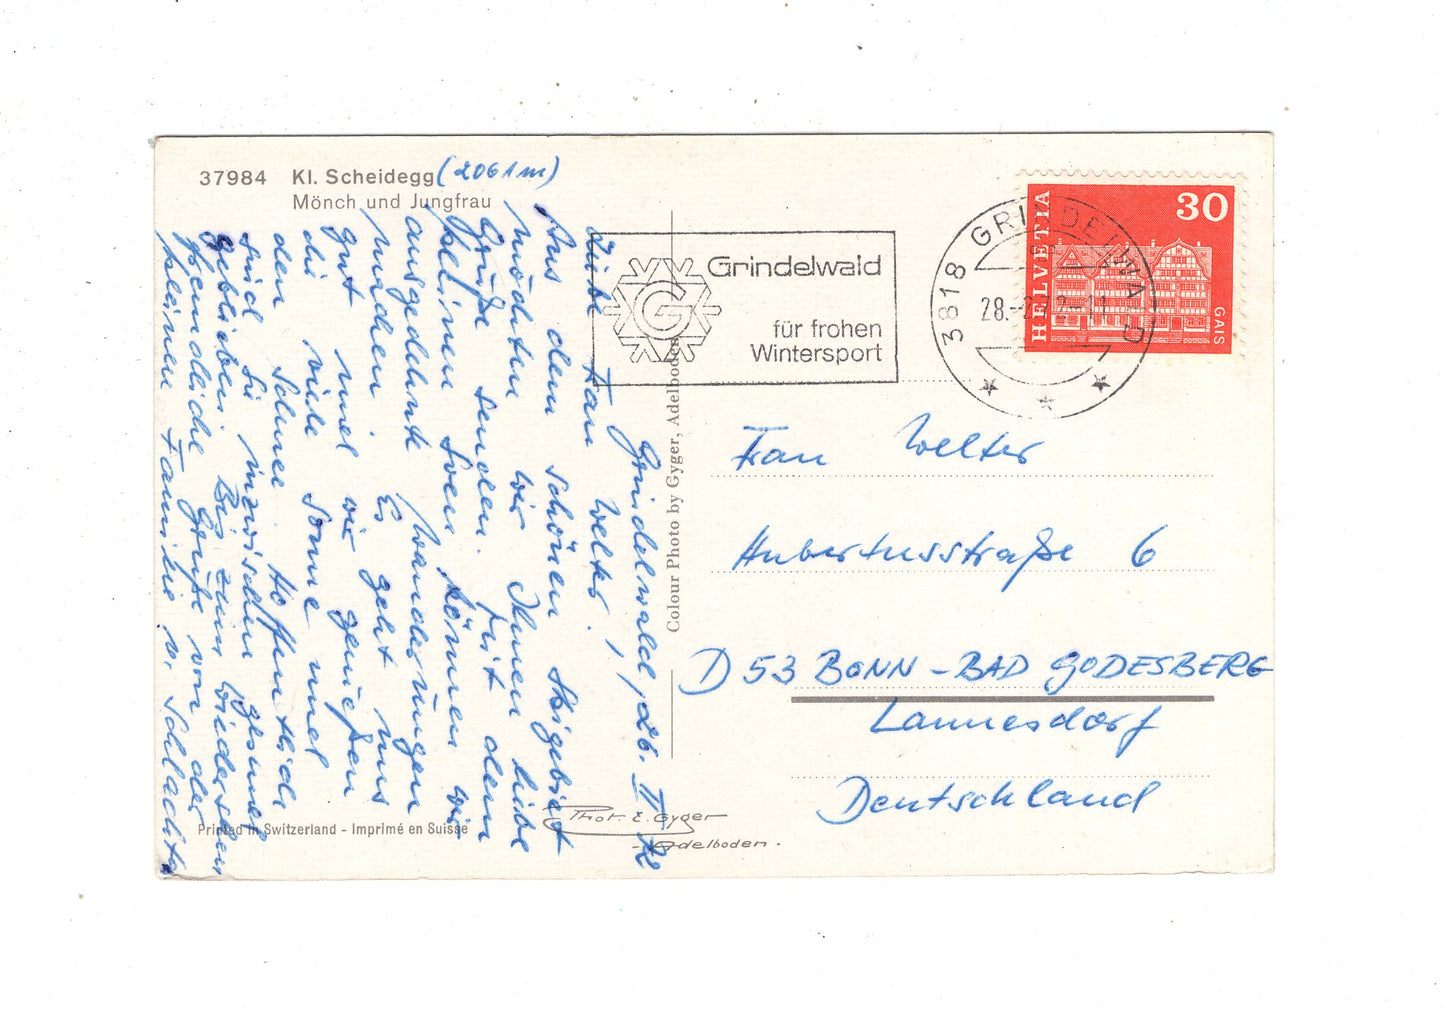 37984 Kl. Scheidegg (2061 m)
Mönch und Jungfrau
Grindelwald, 26. II 72
Liebe Frau Welter!
Aus dem schönen Skigebiet
möchten wir Ihnen liebe
Grüße senden. Mit dem
kleinen Sven können wir
ausgedehnte Wanderungen
machen. Es geht uns
gut und wir genießen
die viele Sonne und
den Schnee. Hoffentlich
sind Sie inzwischen gesund
geblieben. Bis zum Wiedersehen
freundliche Grüße von der
kleinen Familie v. Schlachta
Printed in Switzerland - Imprimé en Suisse
Colour Photo by Gyger, Adelboden
Phot. E. Gyger
Adelboden.
Grindelwald
G
für frohen
Wintersport
3818 GRINDELWALD
28.-2.72-11
HELVETIA
30
GAIS
Frau Welter
Hubertusstraße 6
D 53 BONN - BAD GODESBERG
Lannesdorf
Deutschland